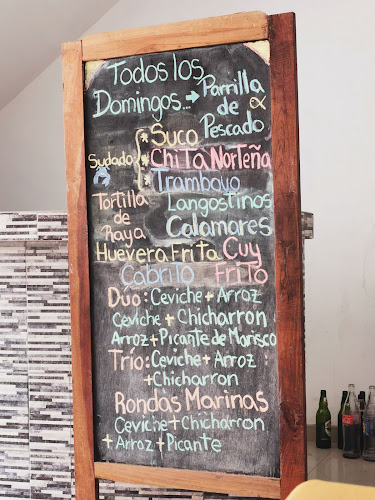 Todos los
Domingos...→ Parrilla
de
Pescado
Sudado
*Suco
*Chita Norteña
*Tramboyo
Tortilla
de
Raya
Langostinos
Calamares
Huevera Frita Cuy
Cabrito Frito
Dúo: Ceviche + Arroz
Ceviche + Chicharron
Arroz + Picante de Marisco
Trío: Ceviche + Arroz
+ Chicharron
Rondas Marinas
Ceviche + Chicharron
+ Arroz + Picante